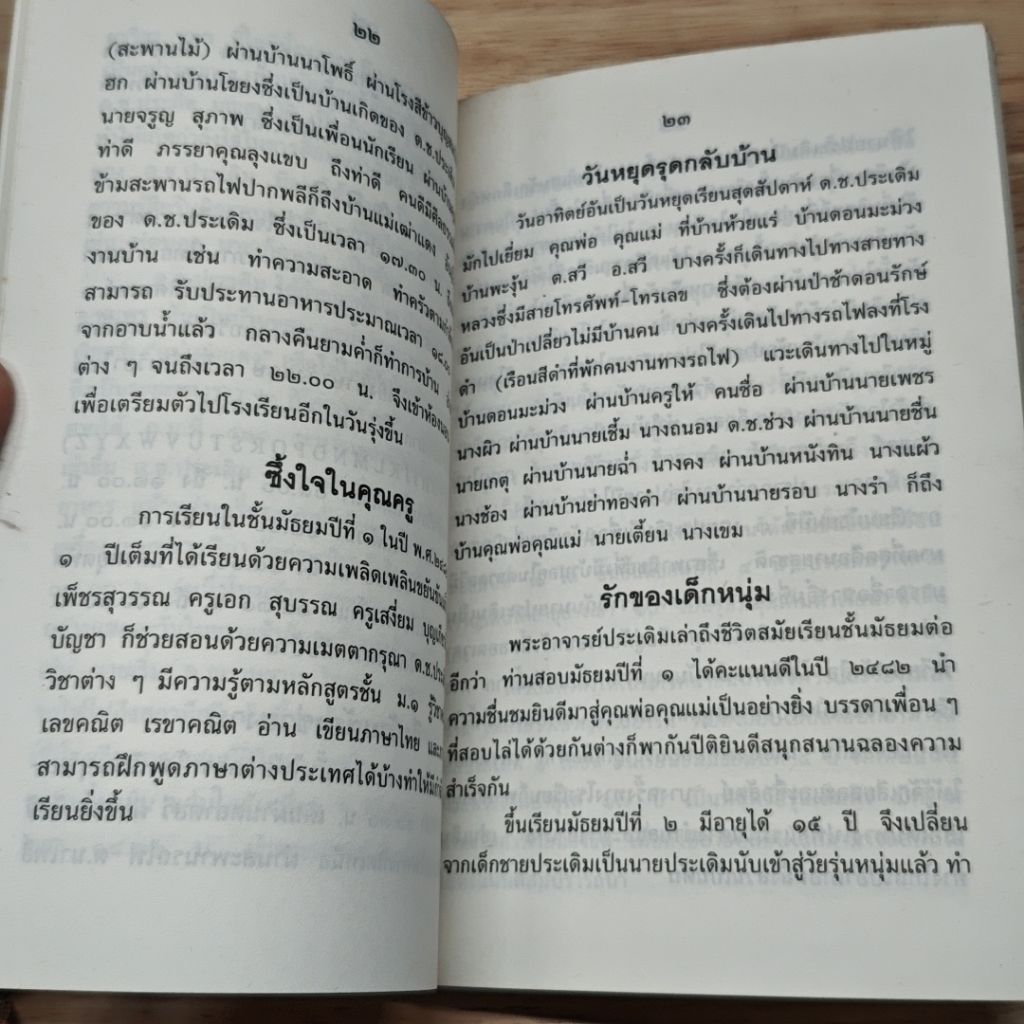 ๒๒
(สะพานไม้) ผ่านบ้านนาโพธิ์ ผ่านโรงสีข้าว
ฮก ผ่านบ้านโขยงซึ่งเป็นบ้านเกิดของ ด.ช.
นายจรูญ สุภาพ ซึ่งเป็นเพื่อนนักเรียน
ท่าดี ภรรยาคุณลุงแขบ ถึงท่าดี คนดีมี
ข้ามสะพานรถไฟปากพลีก็ถึงบ้านแม่เฒ่าแดง
ของ ด.ช.ประเดิม ซึ่งเป็นเวลา ๑๗.๓๐ น.
งานบ้าน เช่น ทำความสะอาด ทำครัว
สามารถ รับประทานอาหารประมาณเวลา ๑๘.๐๐
จากอาบน้ำแล้ว กลางคืนยามค่ำก็ทำการบ้าน
ต่าง ๆ จนถึงเวลา ๒๒.๐๐ น. จึงเข้าห้องนอน
เพื่อเตรียมตัวไปโรงเรียนอีกในวันรุ่งขึ้น
ซึ้งใจในคุณครู
การเรียนในชั้นมัธยมปีที่ ๑ ในปี พ.ศ.
๑ ปีเต็มที่ได้เรียนด้วยความเพลิดเพลินขยัน
เพ็ชรสุวรรณ ครูเอก สุบรรณ ครูเสงี่ยม
บัญชา ก็ช่วยสอนด้วยความเมตตากรุณา ด.ช.
วิชาต่าง ๆ มีความรู้ตามหลักสูตรชั้น ม.๑
เลขคณิต เรขาคณิต อ่าน เขียนภาษาไทย
สามารถฝึกพูดภาษาต่างประเทศได้บ้างทำให้
เรียนยิ่งขึ้น
๒๓
วันหยุดรุดกลับบ้าน
วันอาทิตย์อันเป็นวันหยุดเรียนสุดสัปดาห์ ด.ช.ประเดิม
มักไปเยี่ยม คุณพ่อ คุณแม่ ที่บ้านห้วยแร่ บ้านดอนมะม่วง
บ้านพะงุ้น ต.สวี อ.สวี บางครั้งก็เดินทางไปทางสายทาง
หลวงซึ่งมีสายโทรศัพท์-โทรเลข ซึ่งต้องผ่านป่าช้าดอนรักษ์
อันเป็นป่าเปลี่ยวไม่มีบ้านคน บางครั้งเดินไปทางรถไฟลงที่โรง
ดำ (เรือนสีดำที่พักคนงานทางรถไฟ) แวะเดินทางไปในหมู่
บ้านดอนมะม่วง ผ่านบ้านครูให้ คนซื่อ ผ่านบ้านนายเพชร
นางผิว ผ่านบ้านนายเชี้ม นางถนอม ด.ช.ช่วง ผ่านบ้านนายชื่น
นายเกตุ ผ่านบ้านนายฉ่ำ นางคง ผ่านบ้านหนังทิน นางแผ้ว
นางช้อง ผ่านบ้านย่าทองคำ ผ่านบ้านนายรอบ นางรำ ก็ถึง
บ้านคุณพ่อคุณแม่ นายเตี้ยน นางเขม
รักของเด็กหนุ่ม
พระอาจารย์ประเดิมเล่าถึงชีวิตสมัยเรียนชั้นมัธยมต่อ
อีกว่า ท่านสอบมัธยมปีที่ ๑ ได้คะแนนดีในปี ๒๔๘๒ นำ
ความชื่นชมยินดีมาสู่คุณพ่อคุณแม่เป็นอย่างยิ่ง บรรดาเพื่อน ๆ
ที่สอบไล่ได้ด้วยกันต่างก็พากันปีติยินดีสนุกสนานฉลองความ
สำเร็จกัน
ขึ้นเรียนมัธยมปีที่ ๒ มีอายุได้ ๑๕ ปี จึงเปลี่ยน
จากเด็กชายประเดิมเป็นนายประเดิมนับเข้าสู่วัยรุ่นหนุ่มแล้ว ทำ